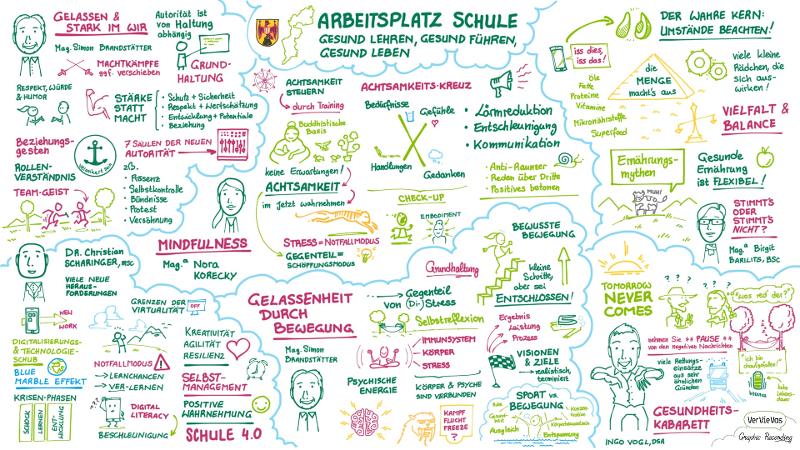 ARBEITSPLATZ SCHULE
GESUND LEHREN, GESUND FÜHREN,
GESUND LEBEN
GELASSEN &
STARK IM WIR
Mag. Simon BRANDSTÄTTER
Autorität ist
von Haltung
abhängig
MACHTKÄMPFE
ggf. verschieben
GRUND-
HALTUNG
RESPEKT, WÜRDE
& HUMOR
STÄRKE
STATT
MACHT
• Schutz + Sicherheit
• Respekt + Wertschätzung
• Entwicklung + Potentiale
• Beziehung
Beziehungs-
gesten
ROLLEN-
VERSTÄNDNIS
TEAM-GEIST
7 SÄULEN DER NEUEN
AUTORITÄT
zB.
• Präsenz
• Selbstkontrolle
• Bündnisse
• Protest
• Versöhnung
MINDFULNESS
Mag.a Nora
KORECKY
ACHTSAMKEIT
STEUERN
durch Training
Buddhistische
Basis
keine Erwartungen!
ACHTSAMKEIT
im Jetzt wahrnehmen
STRESS = NOTFALLMODUS
GEGENTEIL =
SCHÖPFUNGSMODUS
ACHTSAMKEITS-KREUZ
Bedürfnisse
Gefühle
Handlungen
Gedanken
CHECK-UP
EMBODIMENT
• Lärmreduktion
• Entschleunigung
• Kommunikation
• Anti-Raunzer
• Reden über Dritte
• Positives betonen
DER WAHRE KERN:
UMSTÄNDE BEACHTEN!
iss dies,
iss das!
Öle
Fette
Proteine
Vitamine
Mikronährstoffe
Superfood
die
MENGE
macht's aus
viele kleine
Rädchen, die
sich aus-
wirken!
VIELFALT &
BALANCE
Ernährungs-
mythen
MUH!
Gesunde
Ernährung
ist FLEXIBEL!
STIMMT'S
ODER
STIMMT'S
NICHT?
Mag.a Birgit
BARILITS, BSc
DR. Christian
SCHARINGER, MSc
VIELE NEUE
HERAUS-
FORDERUNGEN
NEW
WORK
GRENZEN DER
VIRTUALITÄT
OFF
DIGITALISIERUNGS-
& TECHNOLOGIE-
SCHUB
BLUE
MARBLE EFFEKT
KRISEN-PHASEN
SCHOCK
LERNEN
ENT-
WICKLUNG
NOTFALLMODUS
→ LERNCHANCEN
→ VER-LERNEN
DIGITAL
LITERACY
BESCHLEUNIGUNG
KREATIVITÄT
AGILITÄT
RESILIENZ
SELBST-
MANAGEMENT
POSITIVE
WAHRNEHMUNG
SCHULE 4.0
GELASSENHEIT
DURCH
BEWEGUNG
Mag. Simon
BRANDSTÄTTER
Grundhaltung
Gegenteil
von (Di)Stress
Selbstreflexion
IMMUNSYSTEM
KÖRPER
STRESS
PSYCHISCHE
ENERGIE
KÖRPER & PSYCHE
SIND VERBUNDEN
KAMPF
FLUCHT
FREEZE?
BEWUSSTE
BEWEGUNG
kleine
Schritte,
aber sei
ENTSCHLOSSEN!
Ergebnis
Leistung
Prozess
VISIONEN
& ZIELE
→ realistisch,
terminiert
SPORT vs
BEWEGUNG
Ausgleich
Entspannung
TOMORROW
NEVER
COMES
? ? ?
"was red der?"
nehmen Sie ** PAUSE **
von den negativen Nachrichten
viele Rettungs-
einsätze
aus sehr
ähnlichen
Gründen
ich bin
draufgefallen!
GESUNDHEITS-
KABARETT
INGO VOGL, DSA
VerVieVas
Graphic Recording